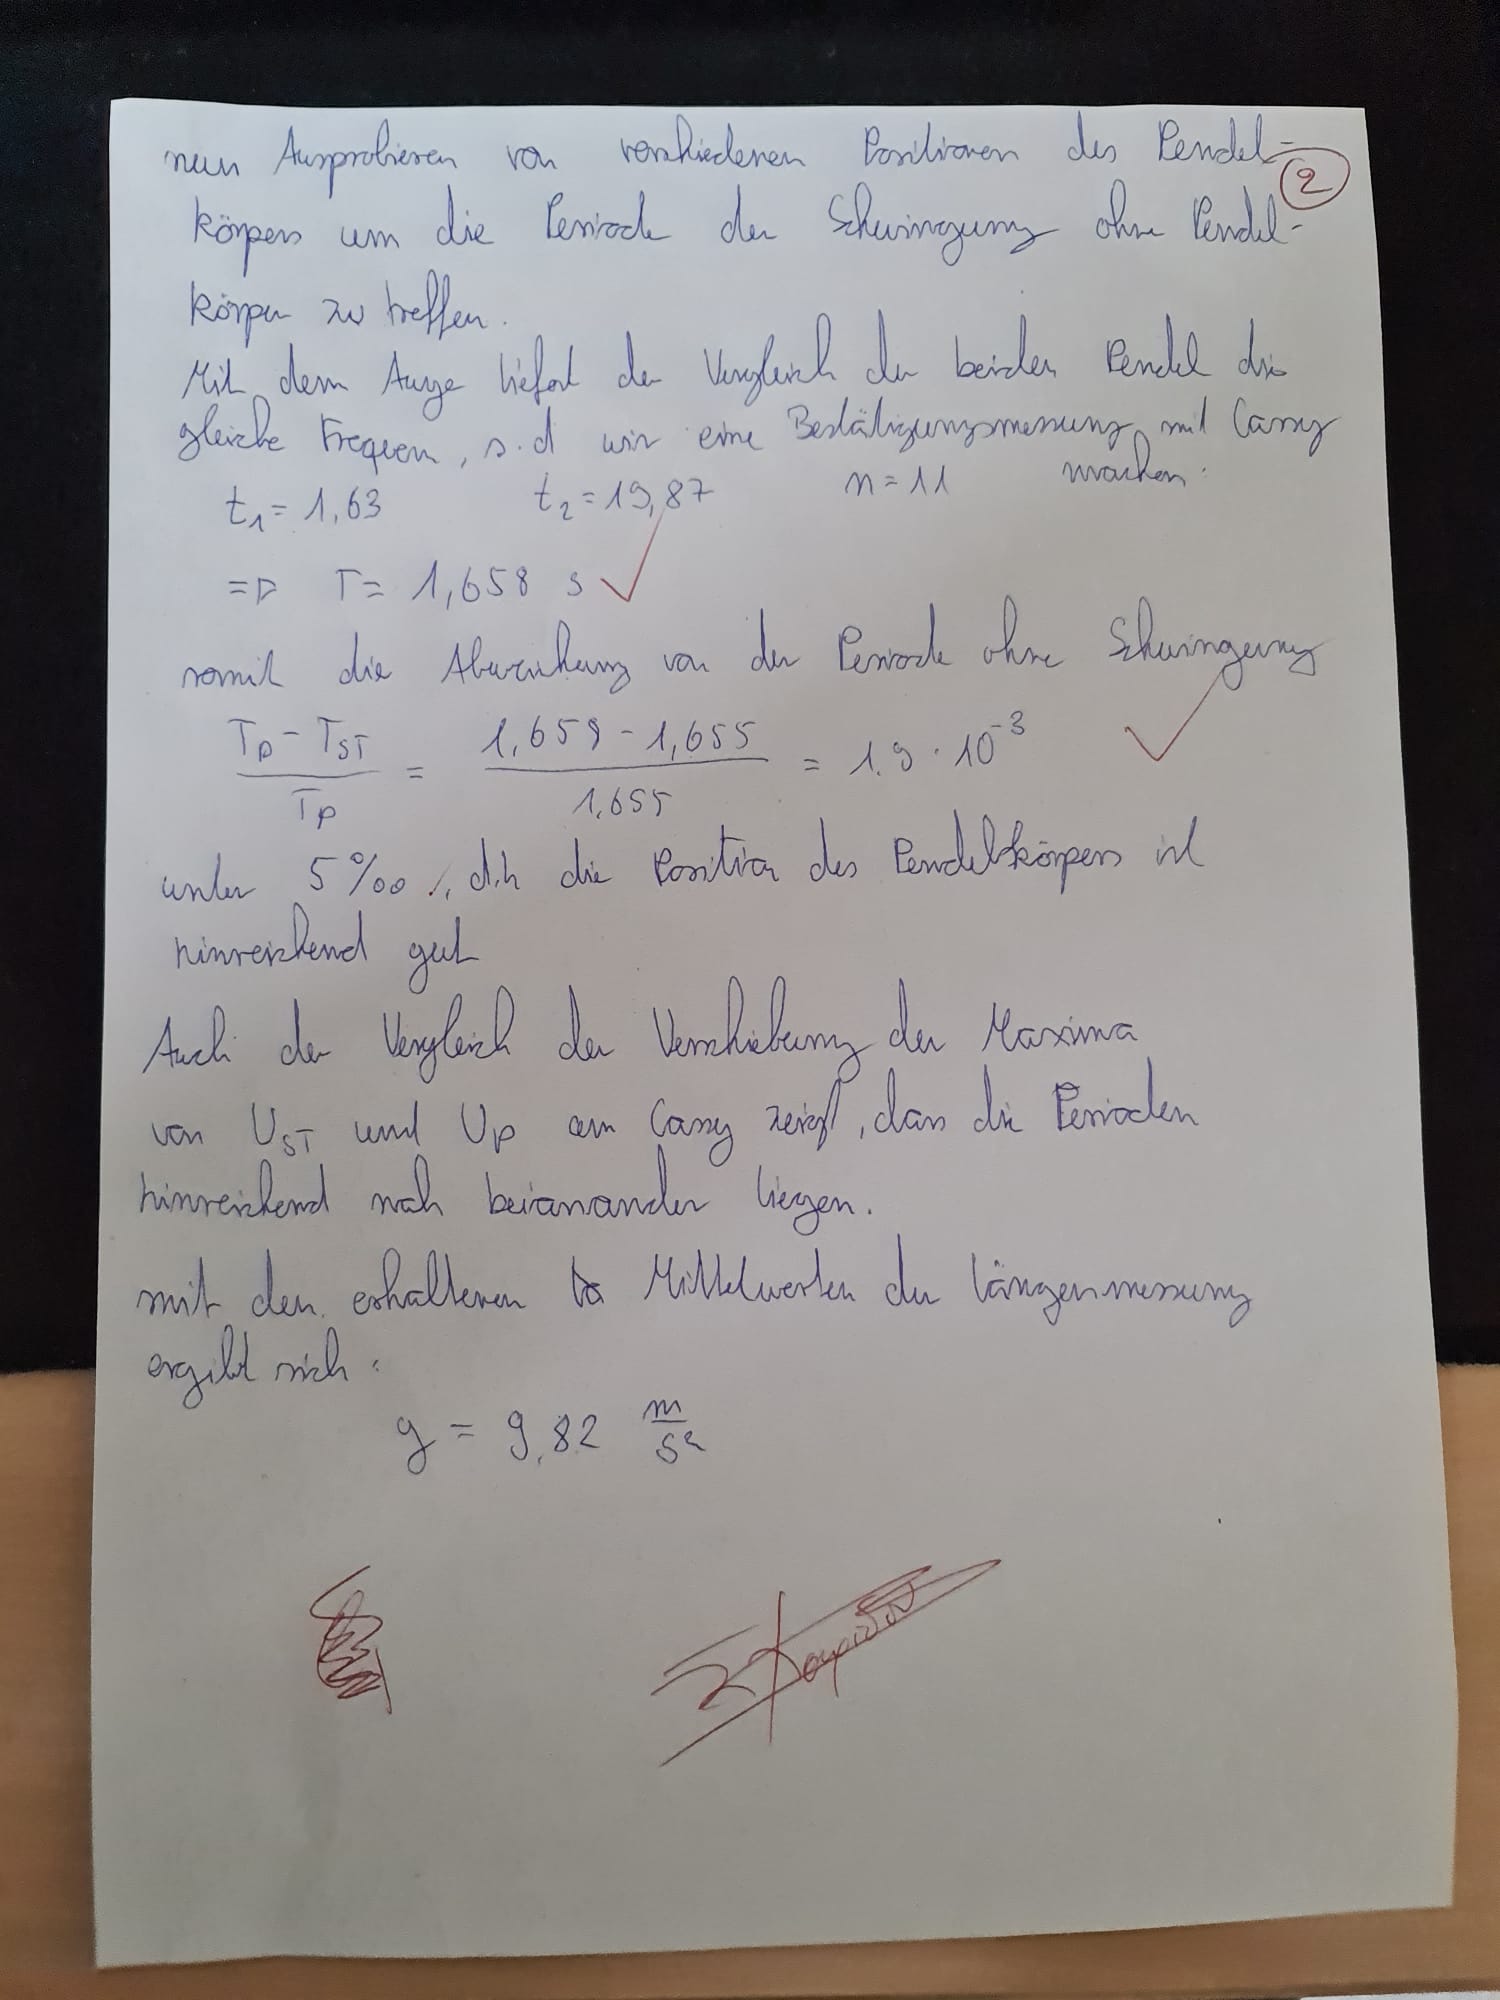 nun Ausprobieren von verschiedenen Positionen des Pendel-
②
körpers um die Periode der Schwingung ohne Pendel-
körper zu treffen.
Mit dem Auge liefert der Vergleich der beiden Pendel die
gleiche Frequenz, s.d wir eine Bestätigungsmessung mit Cassy
machen:
t₁ = 1,63 t₂ = 19,87 n = 11
=> T = 1,658 s ✓
somit die Abweichung von der Periode ohne Schwingung
(T_P - T_ST) / T_P = (1,658 - 1,655) / 1,655 = 1,9 · 10⁻³ ✓
unter 5 ‰, d.h die Position des Pendelkörpers ist
hinreichend gut
Auch der Vergleich der Verschiebung der Maxima
von U_ST und U_P am Cassy zeigt, dass die Perioden
hinreichend nah beianander liegen.
mit den erhaltenen Mittelwerten der Längenmessung
ergibt sich:
g = 9,82 m/s²